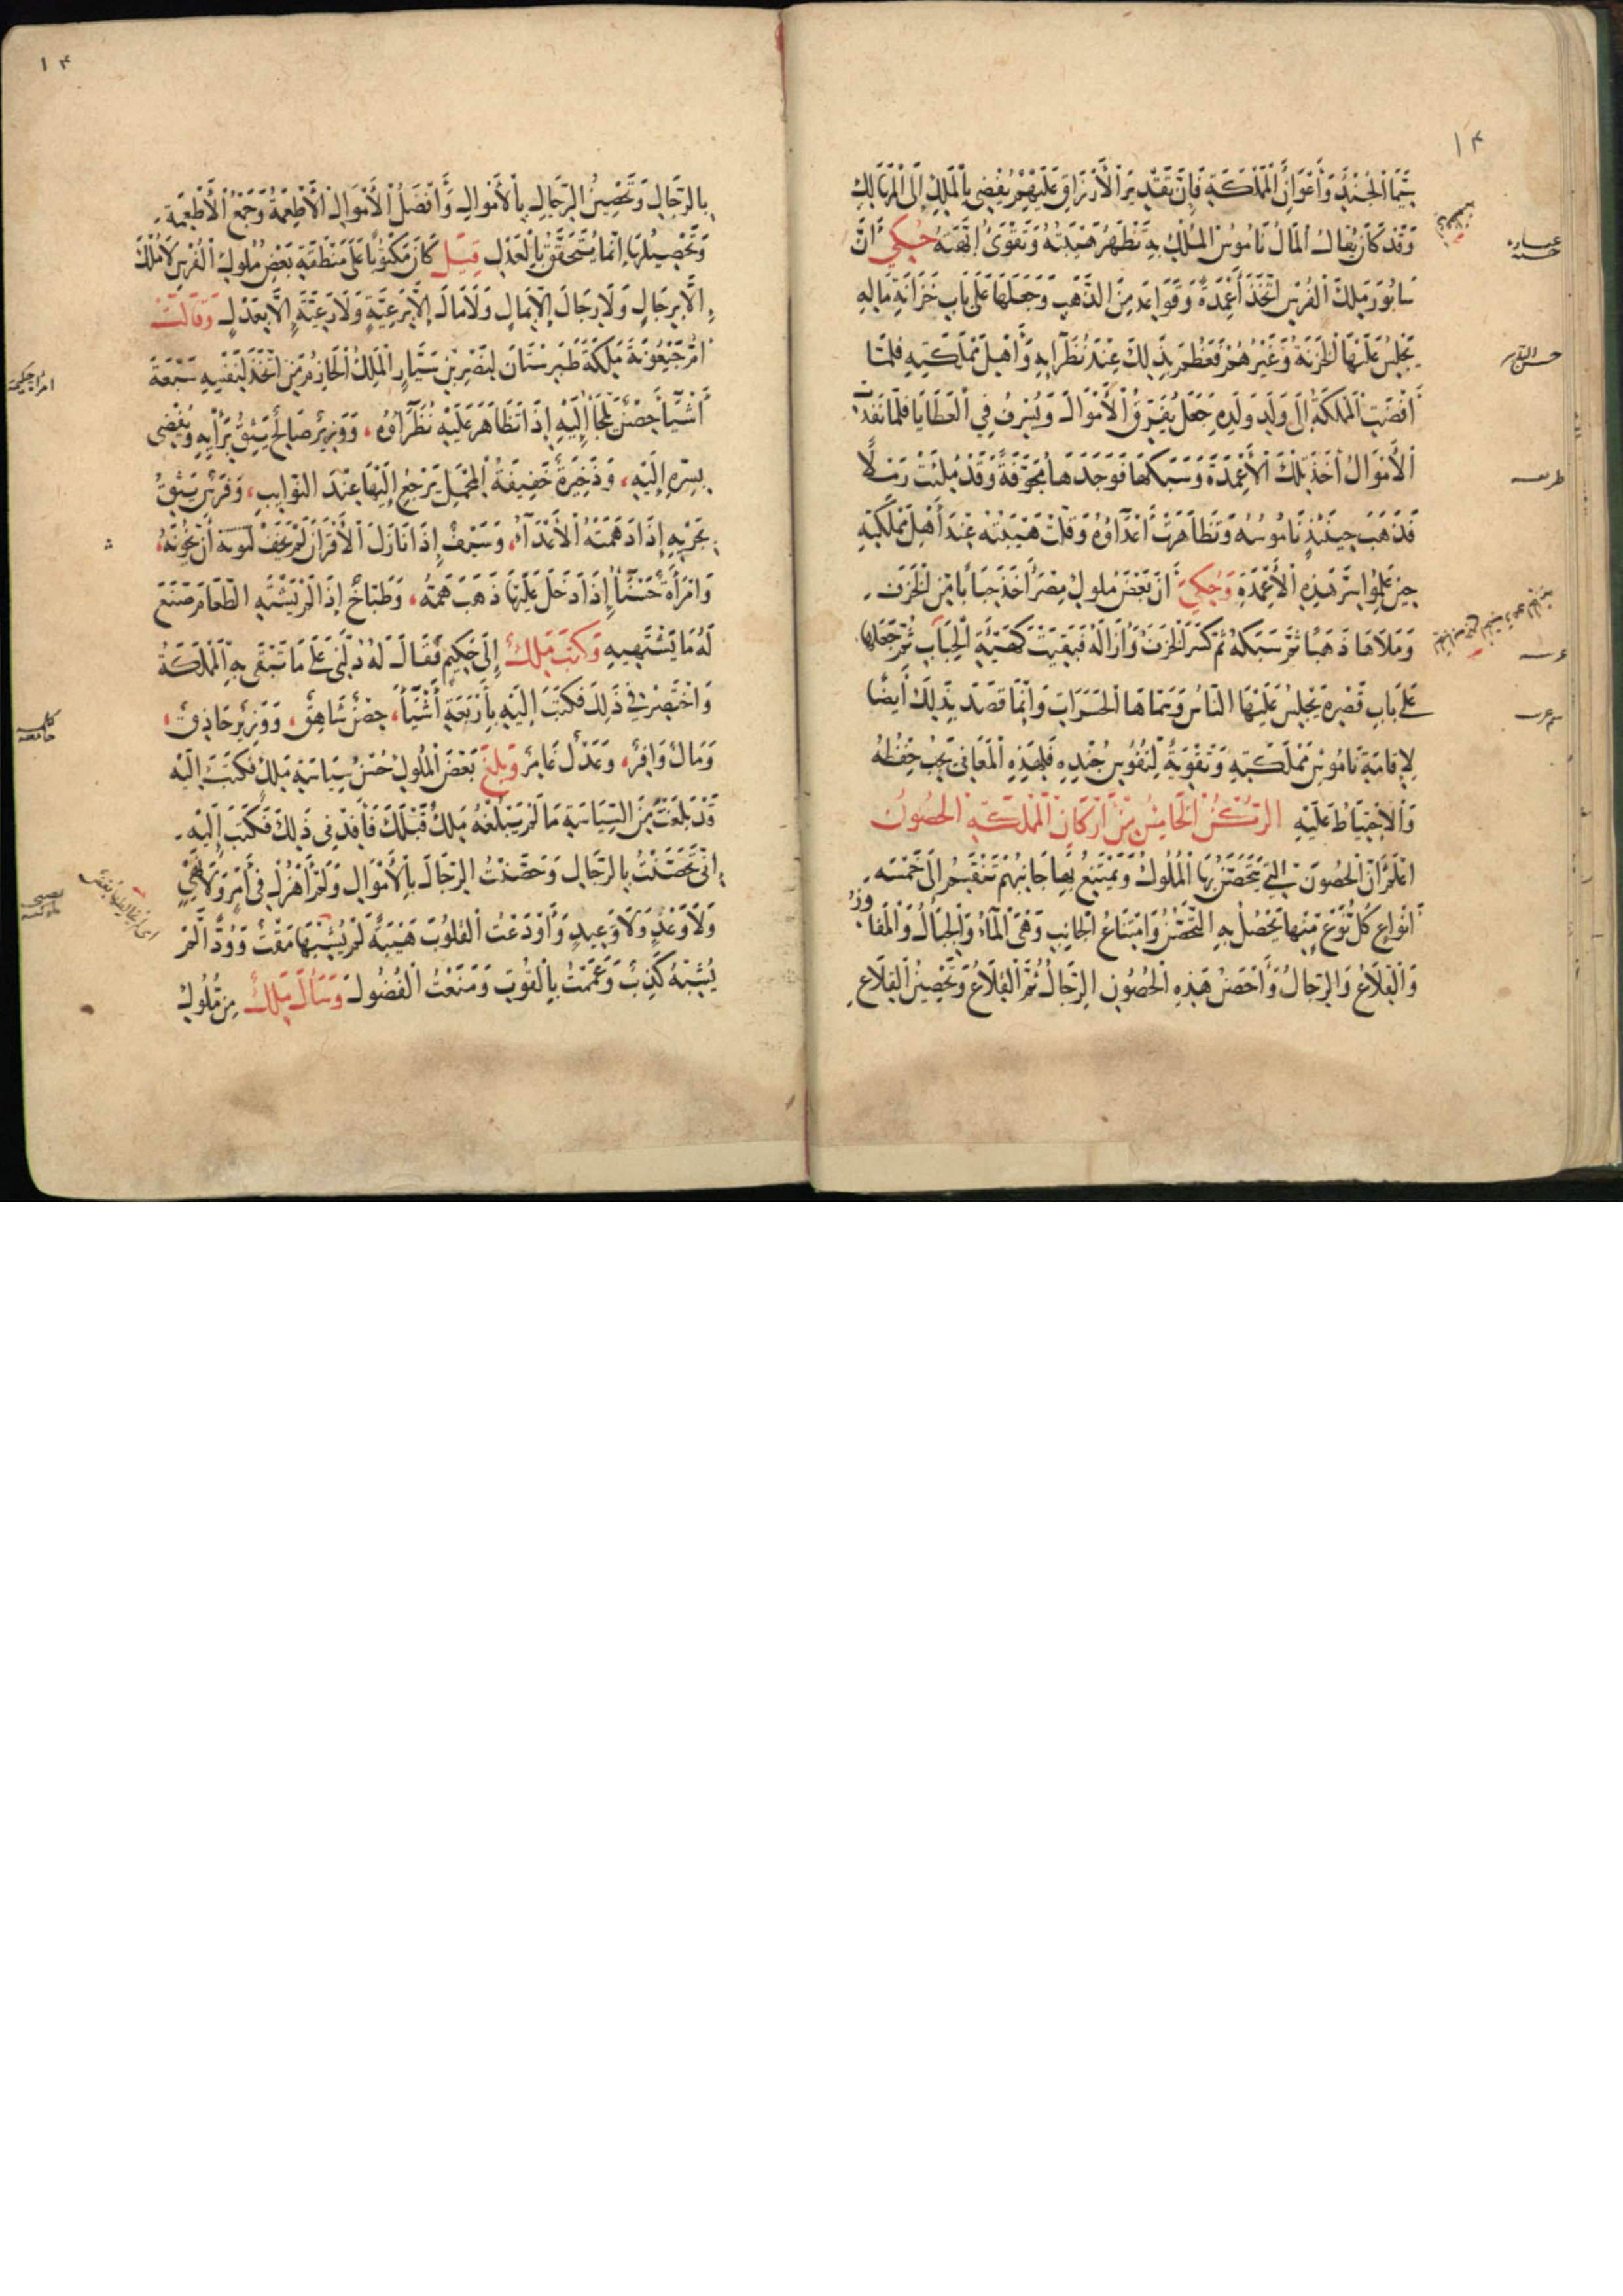 ١٣
سيما الجند وأعوان المملكة فإن تقتير الأرزاق عليهم يفضي بالملك إلى المهالك
وقد كان يقال المال ناموس الملك به تظهر هيبته وتقوى ابهته حكي ان
سابور ملك الفرس اتخذ أعمدة وقواعد من الذهب وجعلها على باب خزانة ماله
يجلس عليها الخزنة وغيرهم فعظم بذلك عند نظرائه وأهل مملكته فلما
افضت المملكة الى ولد ولده جعل يفرق الأموال ويسرف في العطايا فلما نفدت
الأموال أخذ تلك الأعمدة وسبكها فوجدها مجوفة وقد ملئت رملا
فذهب حينئذ ناموسه وتظاهرت اعداؤه وقلت هيبته عند أهل مملكته
حين علموا سر هذه الأعمدة وحكي ان بعض ملوك مصر اخذ جبابا من الخزف
وملأها ذهبا ثم سبكه ثم كسر الخزف وأزاله فبقيت كهيئة الجباب ثم جعلها
على باب قصره يجلس عليها الناس وسماها الجرات وانما قصد بذلك أيضا
لإقامة ناموس مملكته وتقوية لنفوس جنده فلهذه المعاني يجب حفظه
والاحتياط عليه الركن الخامس من أركان المملكة الحصون
اعلم ان الحصون التي يتحصن بها الملوك ويمتنع بها جانبهم تنقسم الى خمسة
انواع كل نوع منها يحصل به التحصن وامتناع الجانب وهي الماء والجبال والمفاوز
والقلاع والرجال وأحصن هذه الحصون الرجال ثم القلاع وتحصين القلاع
عبارة حسنة
١٤
بالرجال وتحصين الرجال بالأموال وأفضل الأموال الأطعمة وجمع الأطعمة
وتحصيلها انما يتحقق بالعدل قيل كان مكتوبا على منطقة بعض ملوك الفرس لا ملك
إلا برجال ولا رجال إلا بمال ولا مال إلا برعية ولا رعية إلا بعدل وقالت
ام جيعونة ملكة طبرستان لنصر بن سيار الملك الحازم من اتخذ لنفسه سبعة
أشياء حصن يلجأ إليه إذا تظاهر عليه نظراؤه، ووزير صالح يثق برأيه ويفضي
بسره إليه، وذخيرة خفيفة المحمل يرجع إليها عند النوايب، وفرس يثق
بجريه إذا دهمته الأعداء، وسيف إذا نازل الأقران لم يخف أن يخونه،
وامرأة حسناء إذا دخل عليها ذهب همه، وطباخ إذا لم يشته الطعام صنع
له ما يشتهيه وكتب ملك إلى حكيم فقال له دلني على ما تبقى به المملكة
واختصر في ذلك فكتب إليه بأربعة أشياء، حصن شاهق، ووزير حاذق،
ومال وافر، وعدل عامر وبلغ بعض الملوك حسن سياسة ملك فكتب اليه
قد بلغت من السياسة ما لم يبلغه ملك قبلك فأفدني ذلك فكتب إليه
اني تحصنت بالرجال وحصنت الرجال بالأموال ولم أهزل في أمر ولا نهي
ولا وعد ولا وعيد وأودعت القلوب هيبة لم يشبها مقت وودا لم
يشبه كذب وعممت بالقوت ومنعت الفضول وسأل ملك من ملوك
امرأ حكيمة
كلمة جامعة